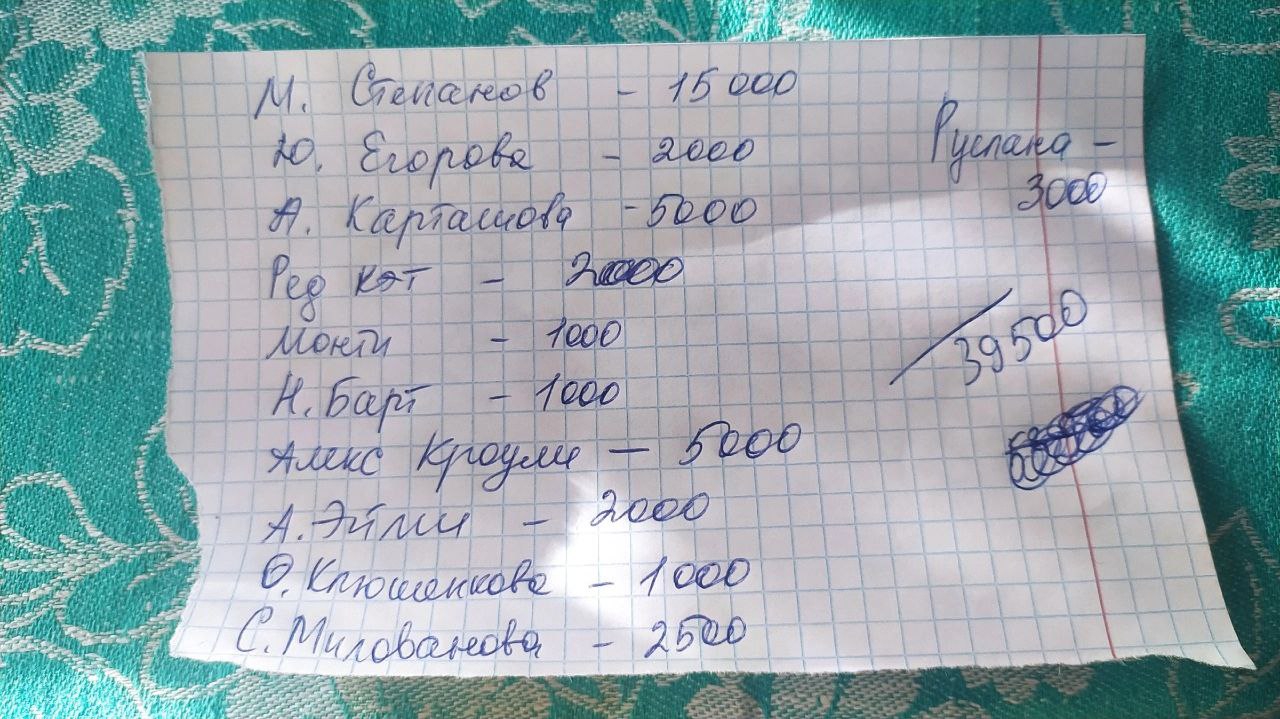 М. Степанов - 15 000
Ю. Егорова - 2000
А. Карташова - 5000
Ред Кэт - 2000
Монти - 1000
Н. Барт - 1000
Алекс Кроули - 5000
А. Эйми - 2000
О. Клюшенкова - 1000
С. Милованова - 2500
Руслана -
3000
39500